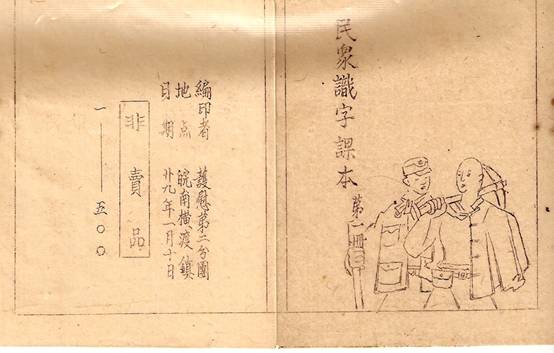 民衆識字課本
第一冊
編印者 護慰第二分團
地点 皖南橫渡鎮
日期 廿九年一月十日
非賣品
一——五〇〇